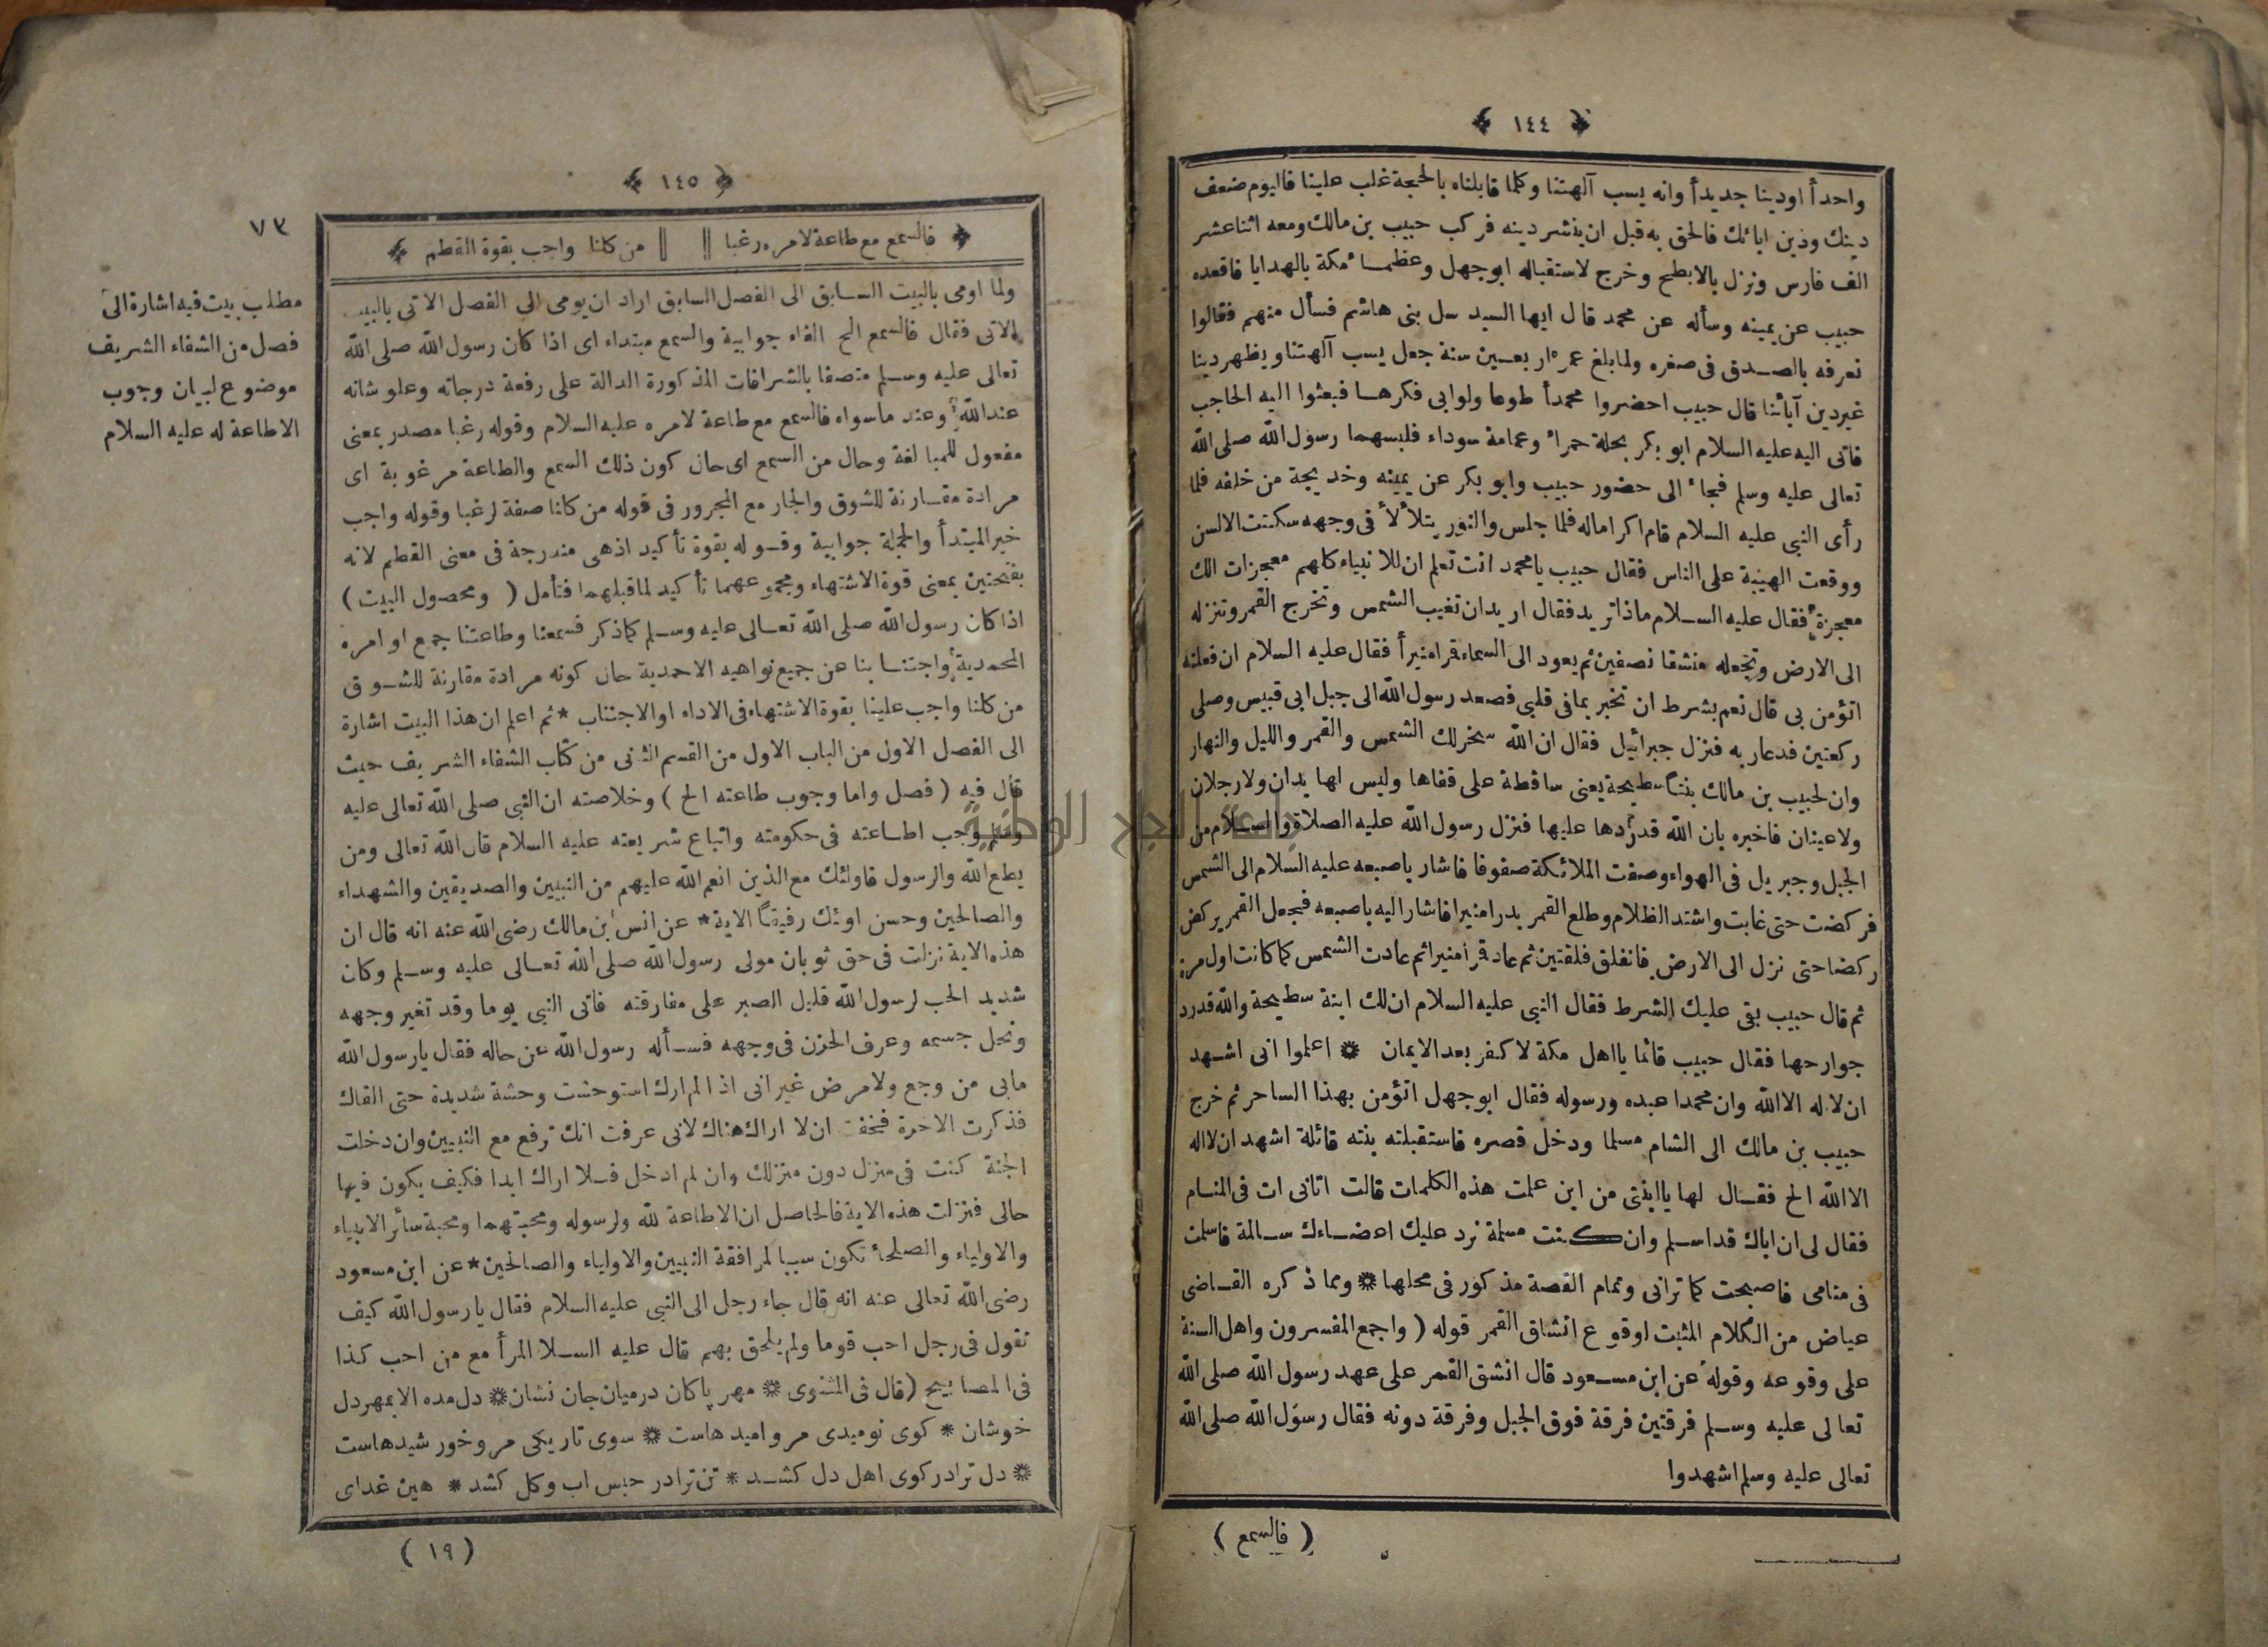 ﴿ ١٤٤ ﴾
واحدأ اودينا جديدأ وانه يسب آلهتنا وكلما قابلناه بالحجة غلب علينا فاليوم ضعف
دينك ودين ابائك فالحق به قبل ان ينشر دينه فركب حبيب بن مالك ومعه اثنا عشر
الف فارس ونزل بالابطح وخرج لاستقباله ابو جهل وعظماء مكة بالهدايا فاقعده
حبيب عن يمينه وسأله عن محمد قال ايها السيد سل بنى هاشم فسأل منهم فقالوا
نعرفه بالصدق فى صغره ولما بلغ عمره اربعين سنة جعل يسب آلهتنا ويظهر دينا
غير دين آبائنا قال حبيب احضروا محمدأ طوعا ولو ابى فكرها فبعثوا اليه الحاجب
فاتى اليه عليه السلام ابو بكر بحلة حمراء وعمامة سوداء فلبسهما رسول الله صلى الله
تعالى عليه وسلم فجاء الى حضور حبيب وابو بكر عن يمينه وخديجة من خلفه فلما
رأى النبى عليه السلام قام اكراماله فلما جلس والنور يتلألأ فى وجهه سكنت الالسن
ووقعت الهيبة على الناس فقال حبيب يا محمد انت تعلم ان للانبياء كلهم معجزات الك
معجزة فقال عليه السلام ماذا تريد فقال اريد ان تغيب الشمس وتخرج القمر وتنزله
الى الارض وتجعله منشقا نصفين ثم يعود الى السماء قرا منيرأ فقال عليه السلام ان فعلته
اتؤمن بى قال نعم بشرط ان تخبر بما فى قلبى فصعد رسول الله الى جبل ابى قبيس وصلى
ركعتين فدعار به فنزل جبرائيل فقال ان الله سخر لك الشمس والقمر والليل والنهار
وان لحبيب بن مالك بنتا سطيحة يعنى ساقطة على قفاها وليس لها يدان ولا رجلان
ولا عينان فاخبره بان الله قدردها عليها فنزل رسول الله عليه الصلاة والسلام من
الجبل وجبريل فى الهواء وصفت الملائكة صفوفا فاشار باصبعه عليه السلام الى الشمس
فركضت حتى غابت واشتد الظلام وطلع القمر بدرا منيرا فاشار اليه باصبعه فجعل القمر يركض
ركضا حتى نزل الى الارض فانفلق فلقتين ثم عاد قرأ منيرا ثم عادت الشمس كما كانت اول مرة
ثم قال حبيب بقى عليك الشرط فقال النبى عليه السلام ان لك ابنة سطيحة والله قدرد
جوارحها فقال حبيب قائما يا اهل مكة لا كفر بعد الايمان * اعلموا انى اشهد
ان لا له الا الله وان محمدا عبده ورسوله فقال ابو جهل اتؤمن بهذا الساحر ثم خرج
حبيب بن مالك الى الشام مسلما ودخل قصره فاستقبلته بنته قائلة اشهد ان لا اله
الا الله الخ فقال لها يا ابنتى من اين علمت هذه الكلمات قالت اتانى ات فى المنام
فقال لى ان اباك قد اسلم وان كنت مسلمة نرد عليك اعضاءك سالمة فاسلمت
فى منامى فاصبحت كما ترانى وتمام القصة مذكور فى محلها * ومما ذكره القاضى
عياض من الكلام المثبت لوقوع انشاق القمر قوله ( واجمع المفسرون واهل السنة
على وقوعه وقوله عن ابن مسعود قال انشق القمر على عهد رسول الله صلى الله
تعالى عليه وسلم فرقتين فرقة فوق الجبل وفرقة دونه فقال رسول الله صلى الله
تعالى عليه وسلم اشهدوا
( فالسمع )
﴿ ١٤٥ ﴾
٧٣
﴿ فالسمع مع طاعة لامره رغبا || || من كلنا واجب بقوة القطم ﴾
ولما اومى بالبيت السابق الى الفصل السابق اراد ان يومى الى الفصل الاتى بالبيت
الاتى فقال فالسمع الخ الفاء جوابية والسمع مبتداء اى اذا كان رسول الله صلى الله
تعالى عليه وسلم متصفا بالشرافات المذكورة الدالة على رفعة درجاته وعلو شانه
عند الله وعند ماسواه فالسمع مع طاعة لامره عليه السلام وقوله رغبا مصدر بمعنى
مفعول للمبالغة وحال من السمع اى حال كون ذلك السمع والطاعة مرغوبة اى
مرادة مقارنة للشوق والجار مع المجرور فى قوله من كلنا صفة لرغبا وقوله واجب
خبر المبتدأ والجملة جوابية وقوله بقوة تأكيد اذهى مندرجة فى معنى القطم لانه
بفتحتين بمعنى قوة الاشتهاء ومجموعهما تأكيد لما قبلهما فتأمل ( ومحصول البيت )
اذا كان رسول الله صلى الله تعالى عليه وسلم كما ذكر فسمعنا وطاعتنا جمع اوامره
المحمدية واجتنابنا عن جميع نواهيه الاحمدية حال كونه مرادة مقارنة للشوق
من كلنا واجب علينا بقوة الاشتهاء فى الاداء او الاجتناب * ثم اعلم ان هذا البيت اشارة
الى الفصل الاول من الباب الاول من القسم الثانى من كتاب الشفاء الشريف حيث
قال فيه ( فصل واما وجوب طاعته الخ ) وخلاصته ان النبى صلى الله تعالى عليه
وسلم وجب اطاعته فى حكومته واتباع شريعته عليه السلام قال الله تعالى ومن
يطع الله والرسول فاولئك مع الذين انعم الله عليهم من النبيين والصديقين والشهداء
والصالحين وحسن اوئك رفيقا الاية * عن انس بن مالك رضى الله عنه انه قال ان
هذه الاية نزلت فى حق ثوبان مولى رسول الله صلى الله تعالى عليه وسلم وكان
شديد الحب لرسول الله قليل الصبر على مفارقته فاتى النبى يوما وقد تغير وجهه
ونحل جسمه وعرف الحزن فى وجهه فسأله رسول الله عن حاله فقال يارسول الله
مابى من وجع ولا مرض غير انى اذا لم ارك استوحشت وحشة شديدة حتى القاك
فذكرت الاخرة فخفت ان لا اراك هناك لانى عرفت انك ترفع مع النبيين وان دخلت
الجنة كنت فى منزل دون منزلك وان لم ادخل فلا اراك ابدا فكيف يكون فيها
حالى فنزلت هذه الاية فالحاصل ان الاطاعة لله ولرسوله ومحبتهما ومحبة سائر الانبياء
والاولياء والصلحاء تكون سببا لمرافقة النبيين والاولياء والصالحين * عن ابن مسعود
رضى الله تعالى عنه انه قال جاء رجل الى النبى عليه السلام فقال يا رسول الله كيف
تقول فى رجل احب قوما ولم يلحق بهم قال عليه السلا المرأ مع من احب كذا
فى المصابيح ( قال فى المثنوى * مهر پاكان درميان جان نشان * دل مده الا بمهر دل
خوشان * كوى نوميدى مرو اميدهاست * سوى تاريكى مرو خورشيدهاست
* دل ترا در كوى اهل دل كشد * تن ترا در حبس اب وكل كشد * هين غداى
( ١٩ )
مطلب بيت فيه اشارة الى
فصل من الشفاء الشريف
موضوع لبيان وجوب
الاطاعة له عليه السلام